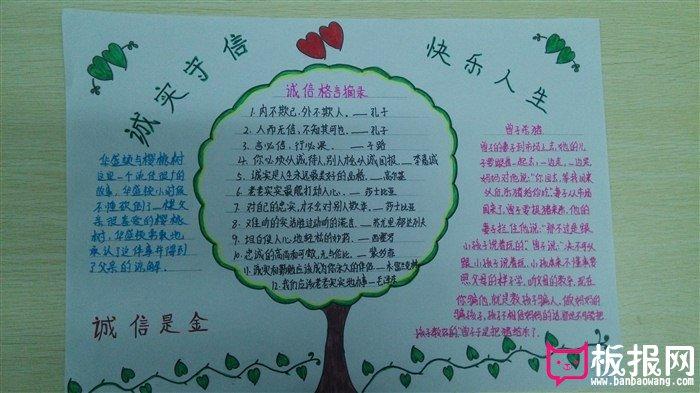 诚实守信
快乐人生
诚信格言摘录
1. 内不欺己,外不欺人。——孔子
2. 人而无信,不知其可也。——孔子
3. 言必信,行必果。——子路
4. 你必以诚待人,别人才以诚回报。——李嘉诚
5. 诚实是人生永远最美好的品格。——高尔基
6. 老老实实最能打动人心。——莎士比亚
7. 对自己的忠实,才不会对别人欺诈。——莎士比亚
9. 坦白使人心地轻松的妙药。——西塞罗
10. 忠诚的高尚和可敬,无与伦比。——
12. 我们应该老老实实地办事。——
华盛顿与樱桃树
这是一个流传很广的
故事,华盛顿小时候
不慎砍倒了一棵父
亲很喜爱的樱桃
树,华盛顿勇敢地
承认了这件事并得到
了父亲的谅解。
诚信是金
曾子杀猪
曾子的妻子到市场上去,他的儿
子要跟着一起去,一边走,一边哭。
妈妈对他说:“你回去,等我回来
以后,杀猪给你吃。”妻子从市场
回来了,曾子要捉猪来杀,他的
妻子拦住他说:“那不过是跟
小孩子说着玩的。”曾子说:“决不可以
跟小孩子说着玩。小孩本来不懂事,要
照父母的样子学,听父母的教导。现在
你骗他,就是教孩子骗人。做妈妈的
骗孩子,孩子不相信妈妈的话,那是不可能把
孩子教好的。”曾子于是把猪给杀了。
板报网
www.banbaowang.com